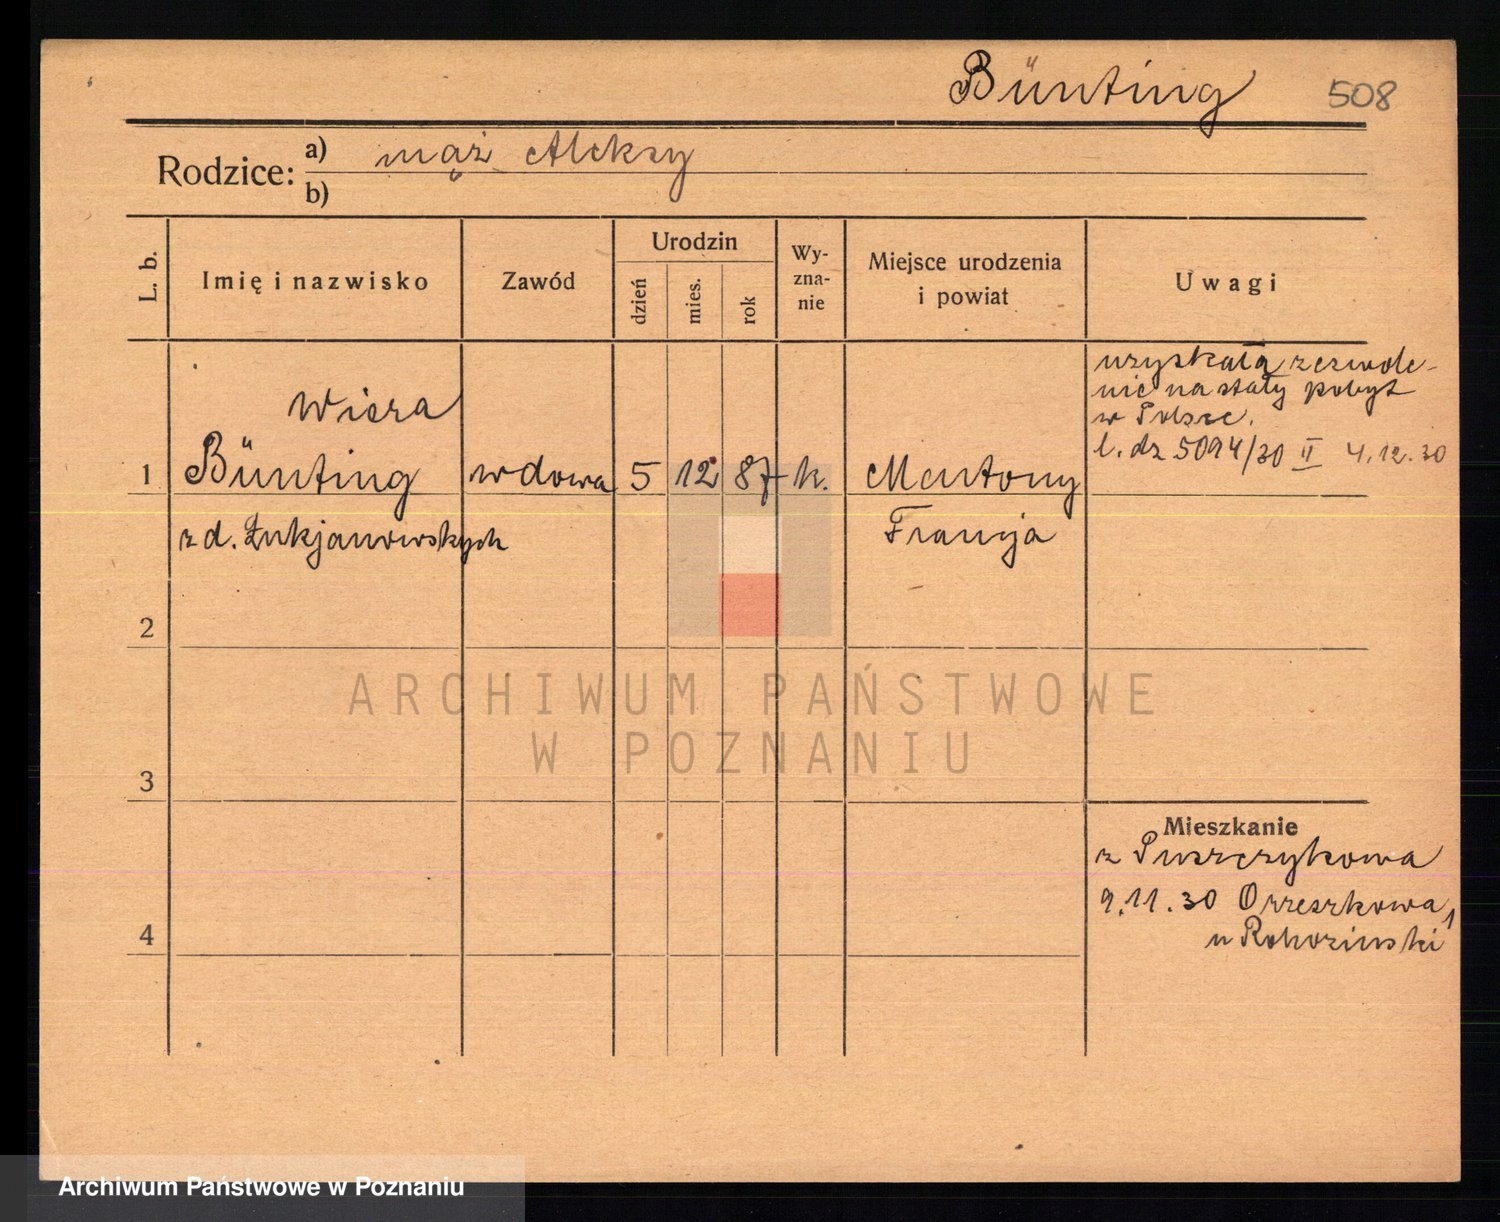 Bünting 508
Rodzice: a) mąż Aleksy
b)
L. b.
Imię i nazwisko
Zawód
Urodzin
dzień
mies.
rok
Wy-
zna-
nie
Miejsce urodzenia
i powiat
Uwagi
uzyskała zezwole-
nie na stały pobyt
w Polsce.
l. dz 5094/30 II 4.12.30
Wiera
1 Bünting wdowa 5 12 87 k. Mentony
z d. Łukjanowskych Francja
2
3
4
Mieszkanie
z Puszczykowa
9.11.30 Orzeszkowa 1
u Rohozinski
ARCHIWUM PAŃSTWOWE
W POZNANIU
Archiwum Państwowe w Poznaniu